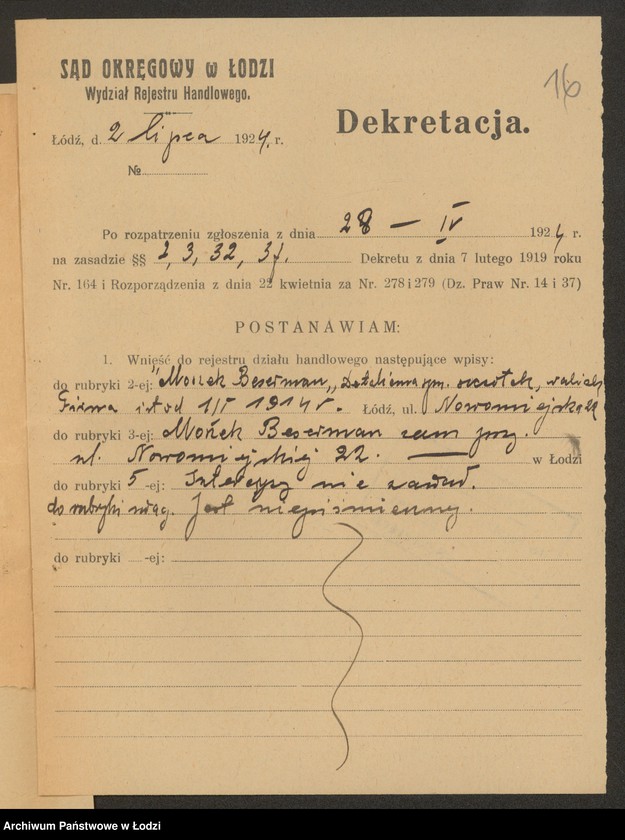 16
SĄD OKRĘGOWY w ŁODZI
Wydział Rejestru Handlowego.
Dekretacja.
Łódź, d. 2 lipca 1924 r.
№
Po rozpatrzeniu zgłoszenia z dnia 28 — IV 1924 r.
na zasadzie §§ 2, 3, 32, Dekretu z dnia 7 lutego 1919 roku
Nr. 164 i Rozporządzenia z dnia 22 kwietnia za Nr. 278 i 279 (Dz. Praw Nr. 14 i 37)
POSTANAWIAM:
1. Wnieść do rejestru działu handlowego następujące wpisy:
do rubryki 2-ej: "Moszek Beserman„
Firma istn. od 1914 r. Łódź, ul. Nowomiejska 22
do rubryki 3-ej: Moszek Beserman zam przy.
ul. Nowomiejskiej 22. — w Łodzi
do rubryki 5-ej: Intercyzy nie zawarł.
do rubryki uwag. Jest niepiśmienny.
do rubryki -ej:
Archiwum Państwowe w Łodzi